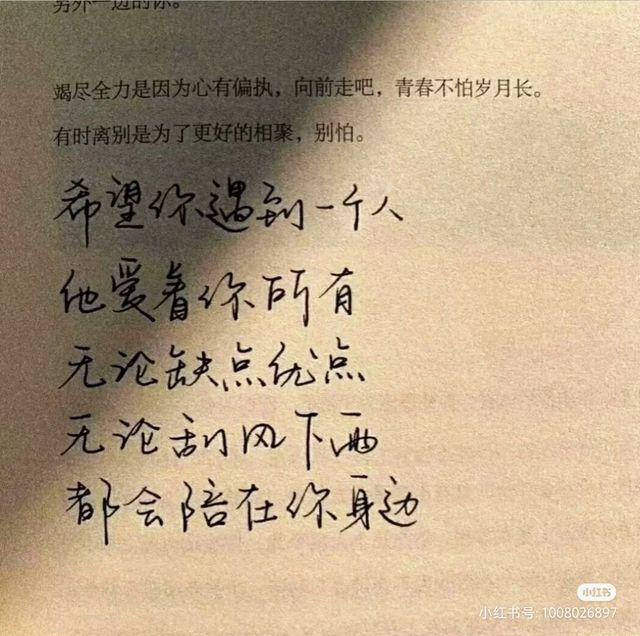 另外一边的你。
竭尽全力是因为心有偏执，向前走吧，青春不怕岁月长。
有时离别是为了更好的相聚，别怕。
希望你遇到一个人
他爱着你所有
无论缺点优点
无论刮风下雨
都会陪在你身边
小红书
小红书号: 1008026897